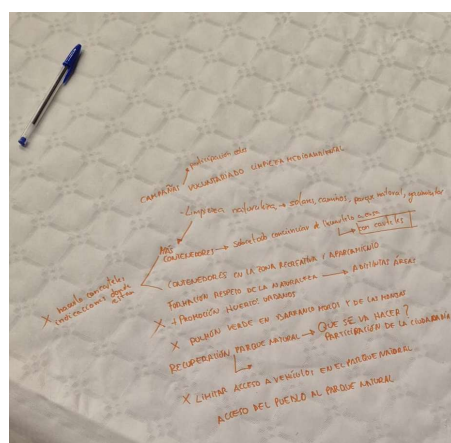 CAMPAÑAS VOLUNTARIADO LIMPIEZA MEDIOAMBIENTAL
Limpieza naturaleza → solares, caminos, parque natural,
MÁS CONTENEDORES → sobretodo
con carteles
CONTENEDORES EN LA ZONA RECREATIVA / APARCAMIENTO
X hacerlo con carteles indicaciones donde están
FORMACIÓN RESPETO DE LA NATURALEZA → A DISTINTAS ÁREAS
X + PROMOCIÓN HUERTOS URBANOS
X PULMÓN VERDE EN BARRANCO HONDO Y DE LAS MONJAS
RECUPERACIÓN PARQUE NATURAL → QUE SE VA HACER?
PARTICIPACIÓN DE LA CIUDADANÍA
X LIMITAR ACCESO A VEHÍCULOS EN EL PARQUE NATURAL
ACCESO DEL PUEBLO AL PARQUE NATURAL